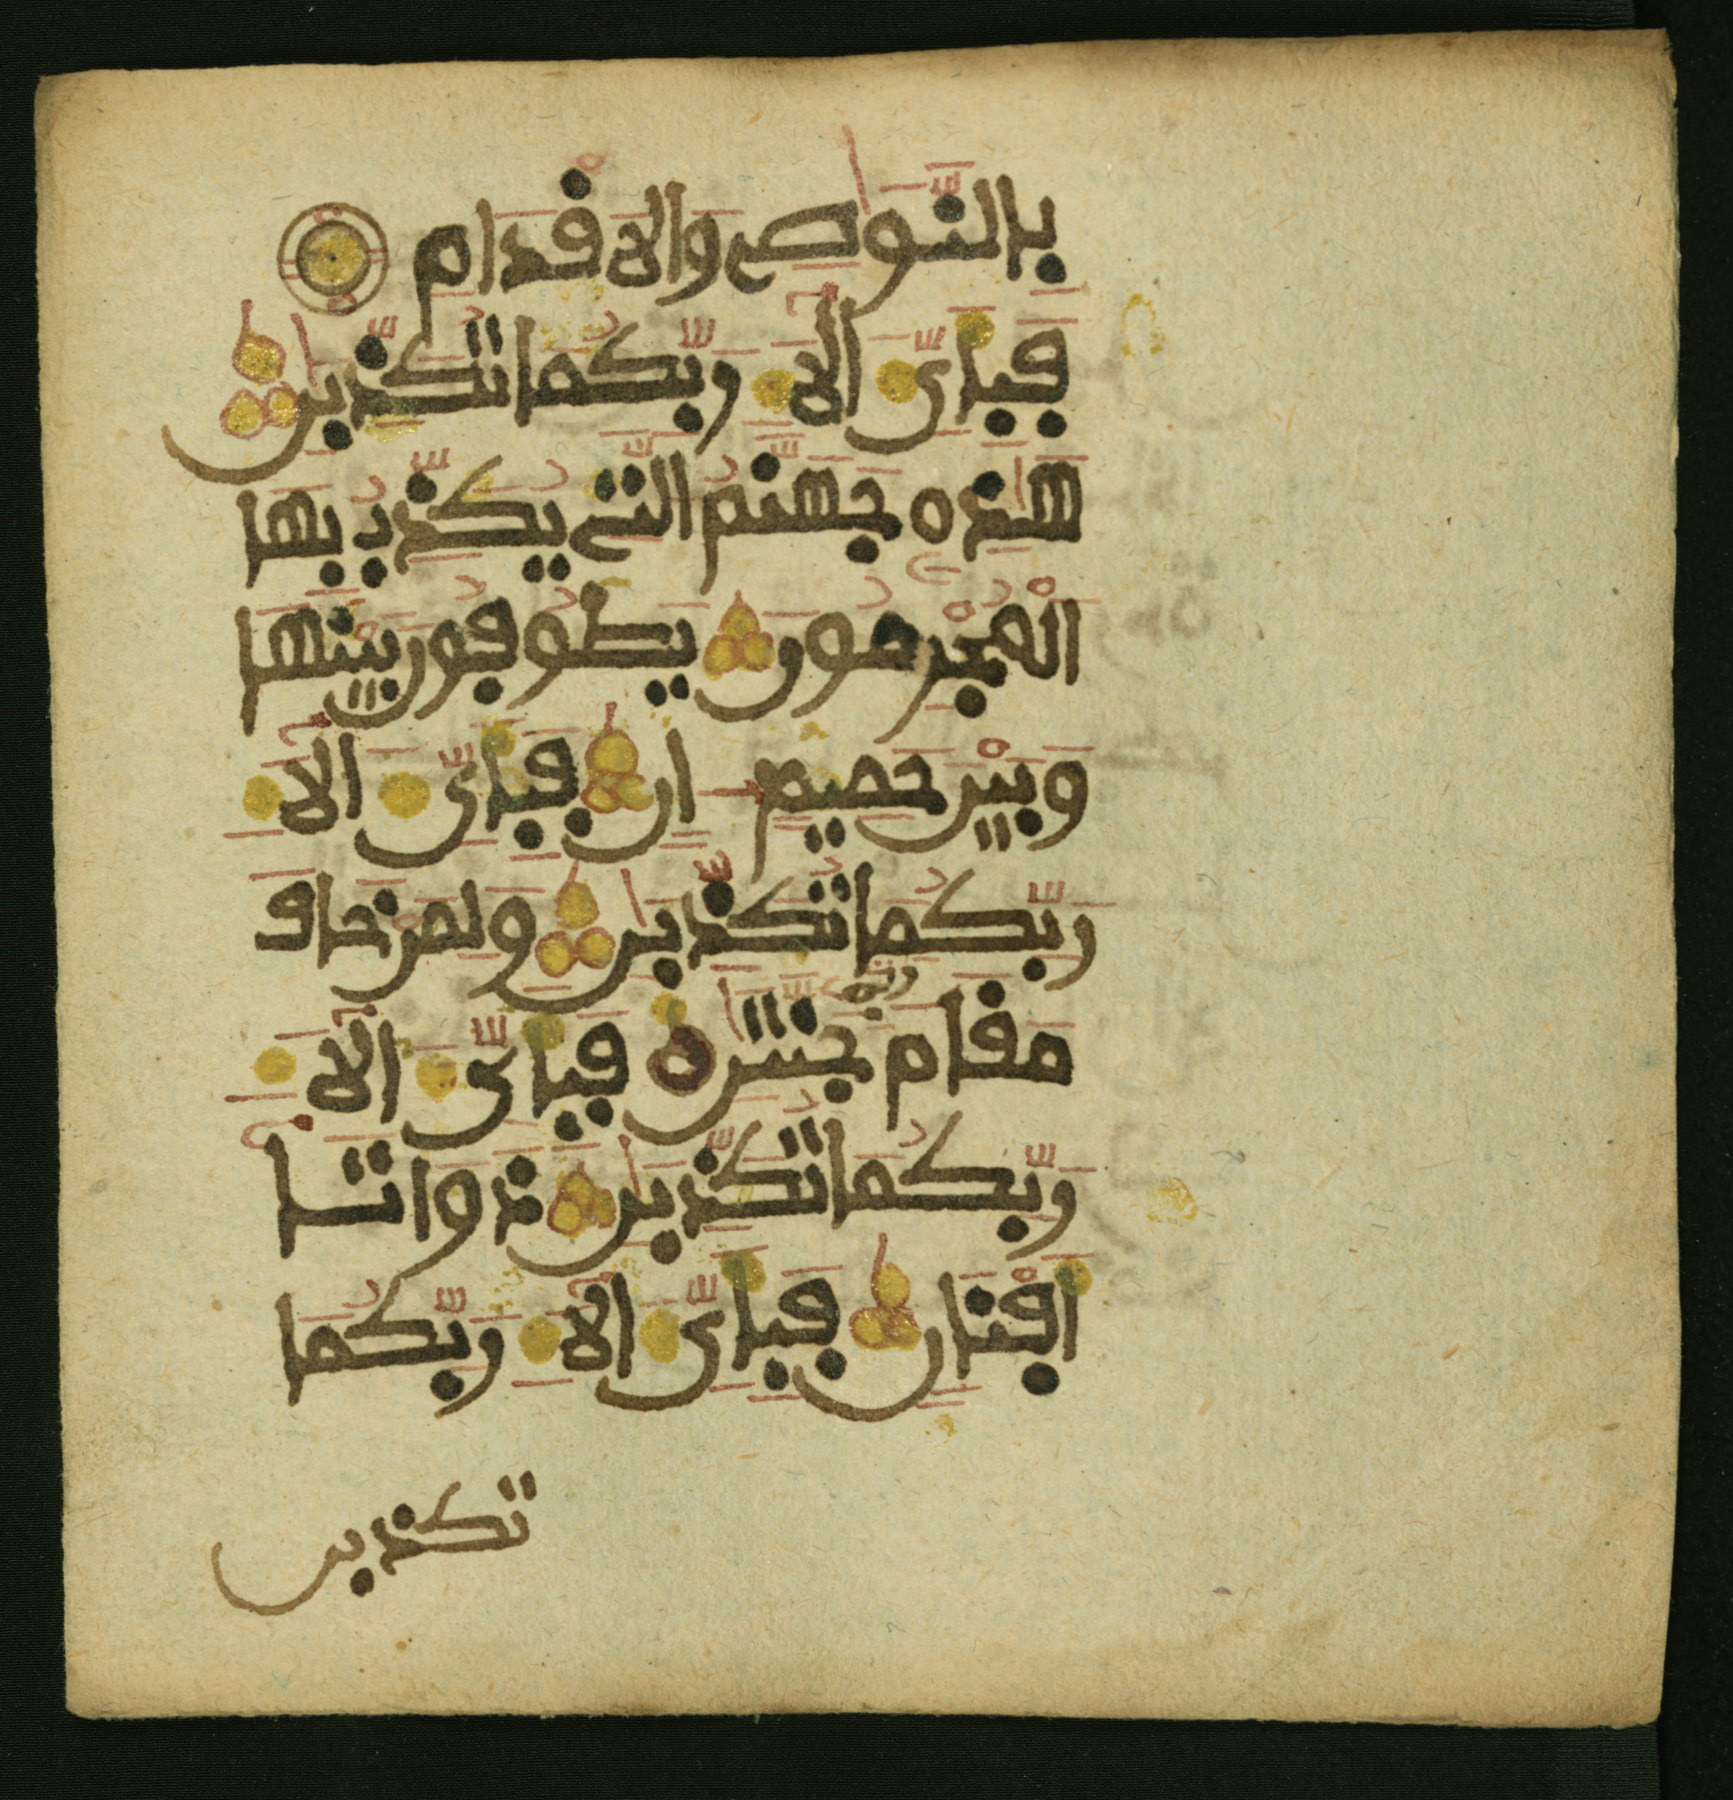 بِالنَّوَٰصِے وَالَافْدَامِ
فَبِأَىِّ ءَالَآءِ رَبِّكُمَا تُكَذِّبَٰنِ
هَٰذِهِۦ جَهَنَّمُ التِے يُكَذِّبُ بِهَا
الْمُجْرِمُونَ يَطُوفُونَ بَيْنَهَا
وَبَيْنَ حَمِيمٍ ـ انٍ فَبِأَىِّ ءَالَآءِ
رَبِّكُمَا تُكَذِّبَٰنِ وَلِمَنْ خَافَ
مَفَامَ رَبِّهِۦ جَنَّتَٰنِ فَبِأَىِّ ءَالَآءِ
رَبِّكُمَا تُكَذِّبَٰنِ ذَوَاتَآ
أَفْنَانٍ فَبِأَىِّ ءَالَآءِ رَبِّكُمَا
تكذبن